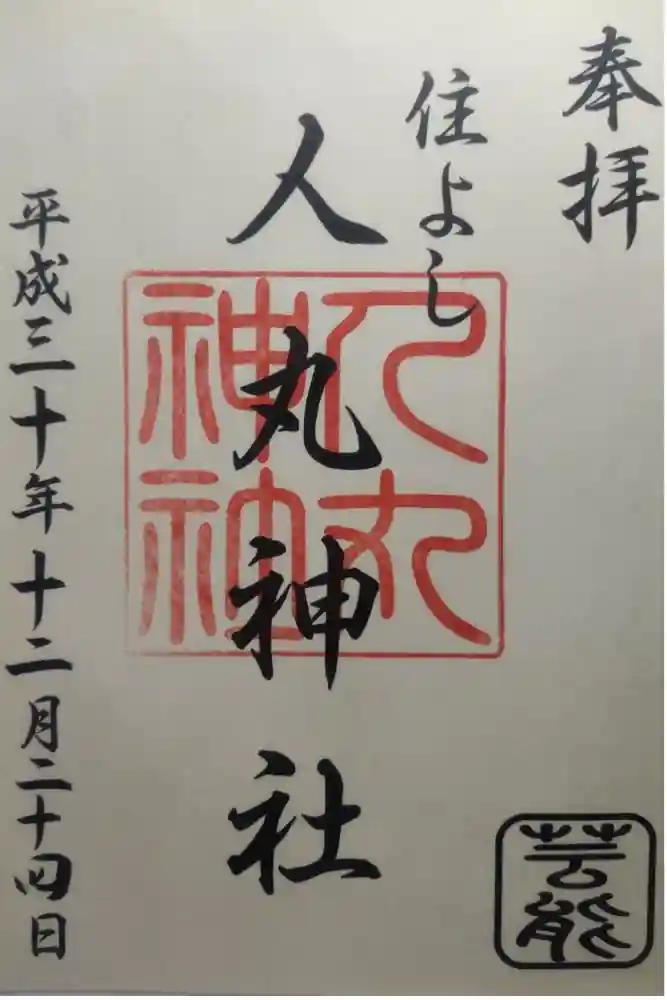 奉拝
住よし
人丸神社
人丸神社
平成三十年十二月二十四日
芸能